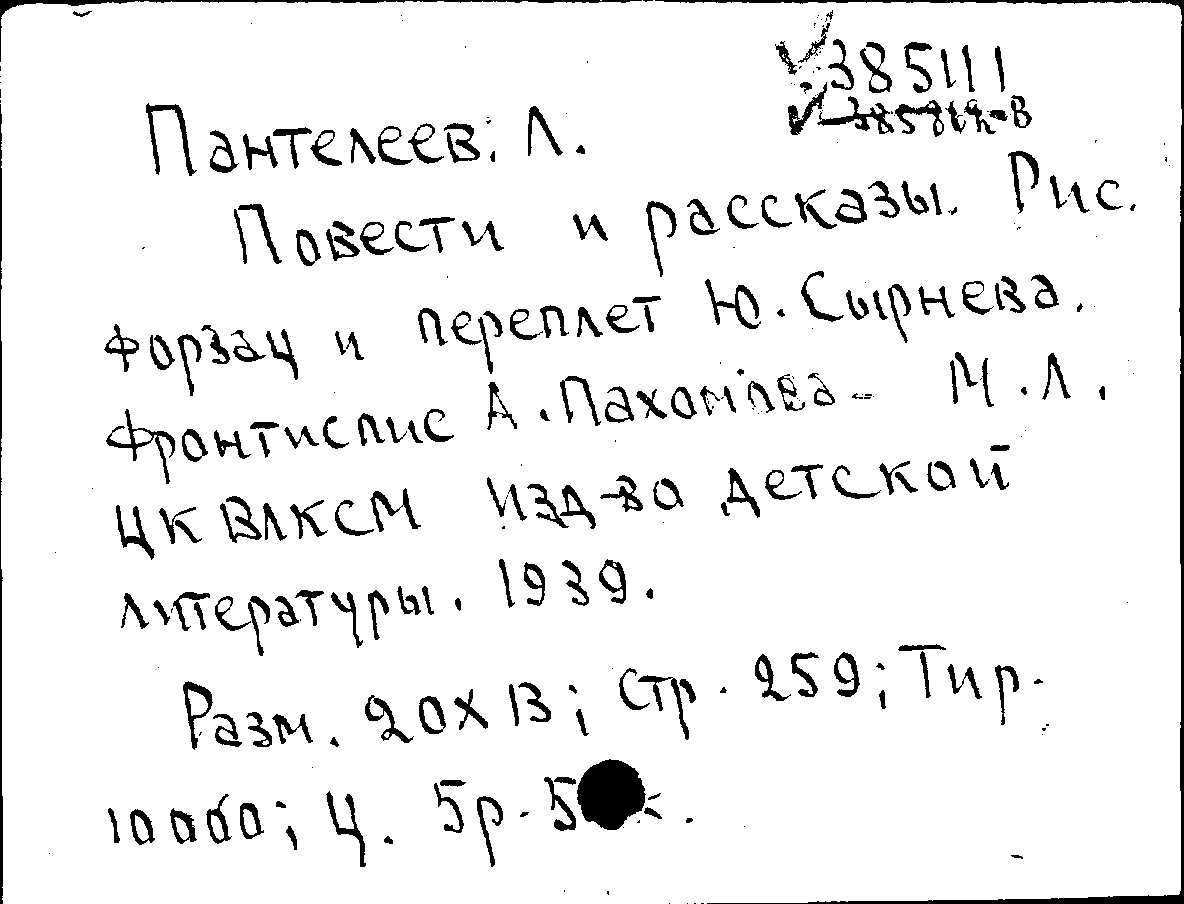 385111
Пантелеев. Л.
Повести и рассказы. Рис.
форзац и переплет Ю. Сырнева.
Фронтиспис А. Пахомова - М.Л.
ЦК ВЛКСМ Изд-во детской
литературы. 1939.
Разм. 20х13; Стр. 259; Тир.
10000; Ц. 5р.